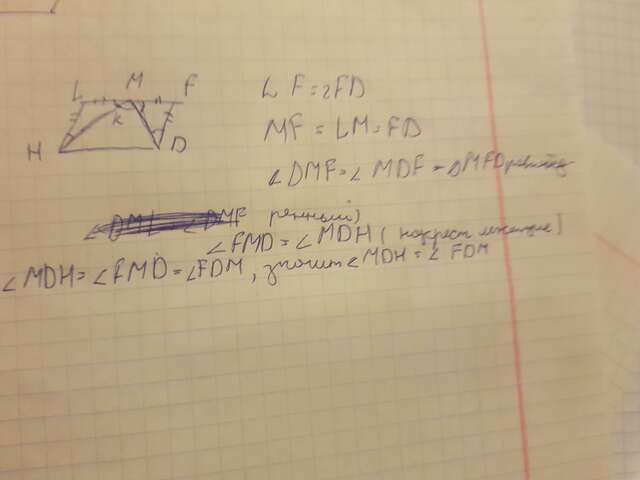 L M F
K
H D
LF = 2FD
MF = LM = FD
∠DMF = ∠MDF = ΔMFD
∠FMD = ∠MDH (накрест лежащие)
∠MDH = ∠FMD = ∠FDM, значит ∠MDH = ∠FDM